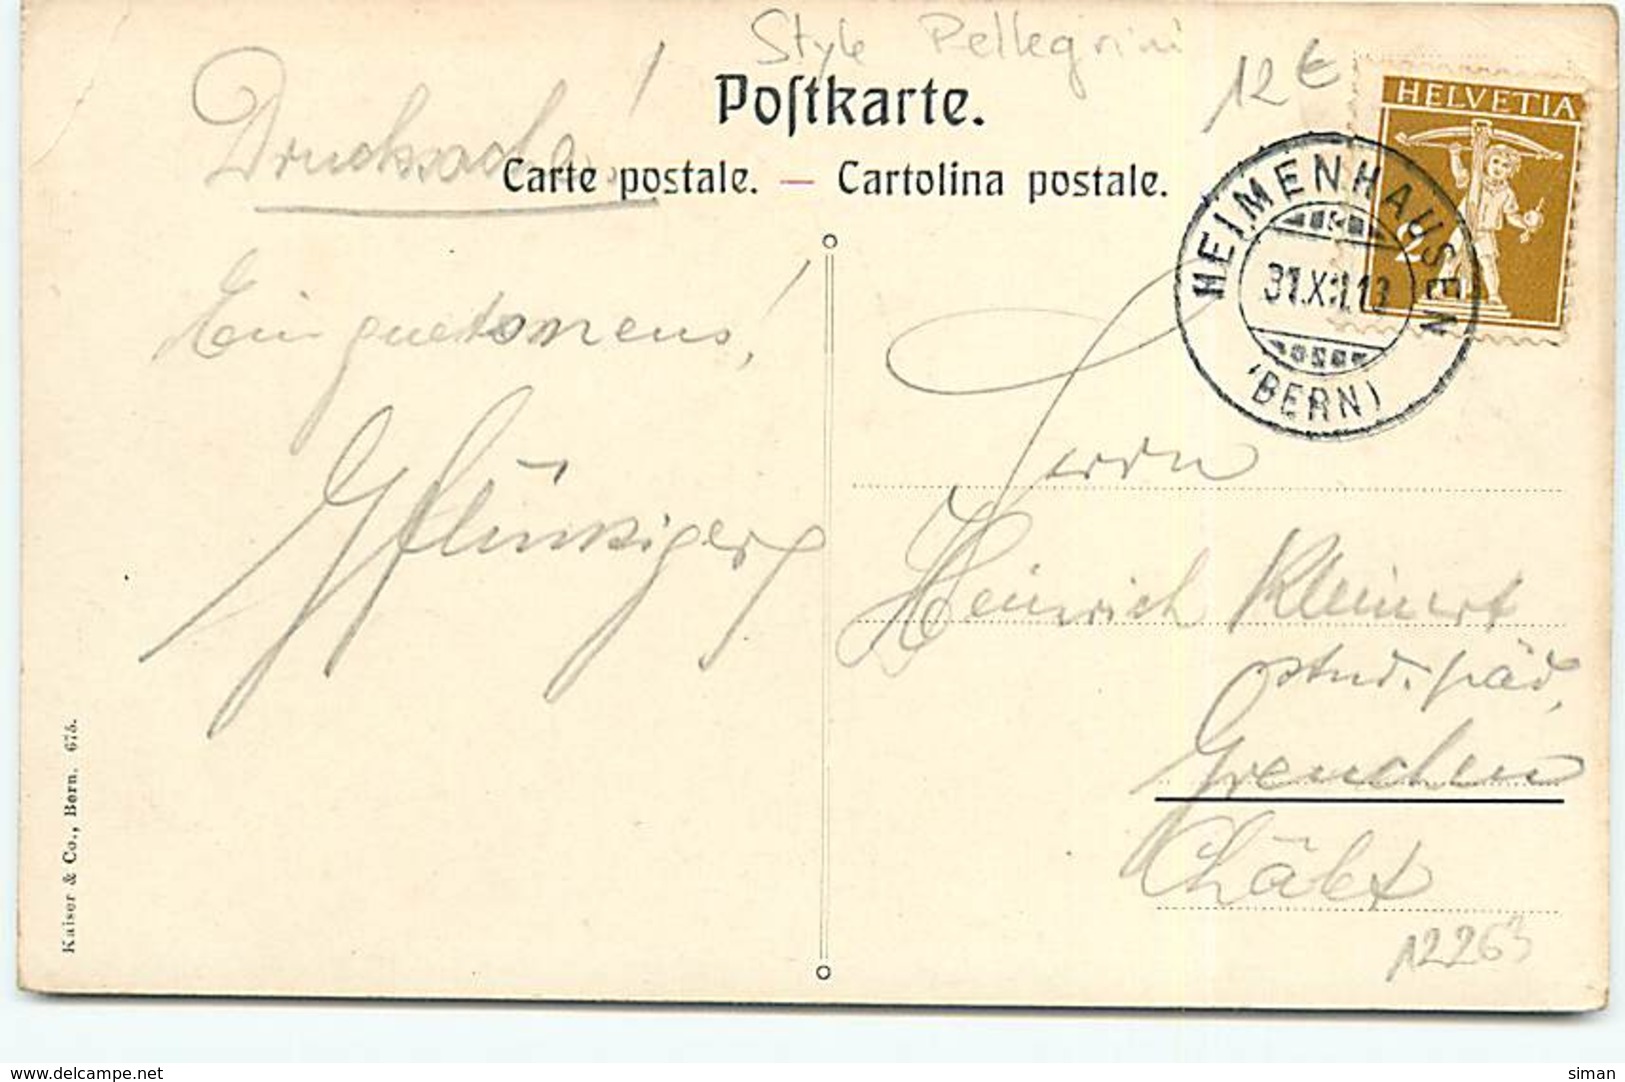 Style Pellegrini
12 €
Drucksache!
Postkarte.
Carte postale. — Cartolina postale.
HELVETIA
2
HEIMENHAUSEN
31.XII.13
(BERN)
Ein guetsneus!
G Flückiger
Herrn
Heinrich Kleinert
stud. päd.
Grenchen
12263
Kaiser & Co., Bern. 675.
www.delcampe.net
siman